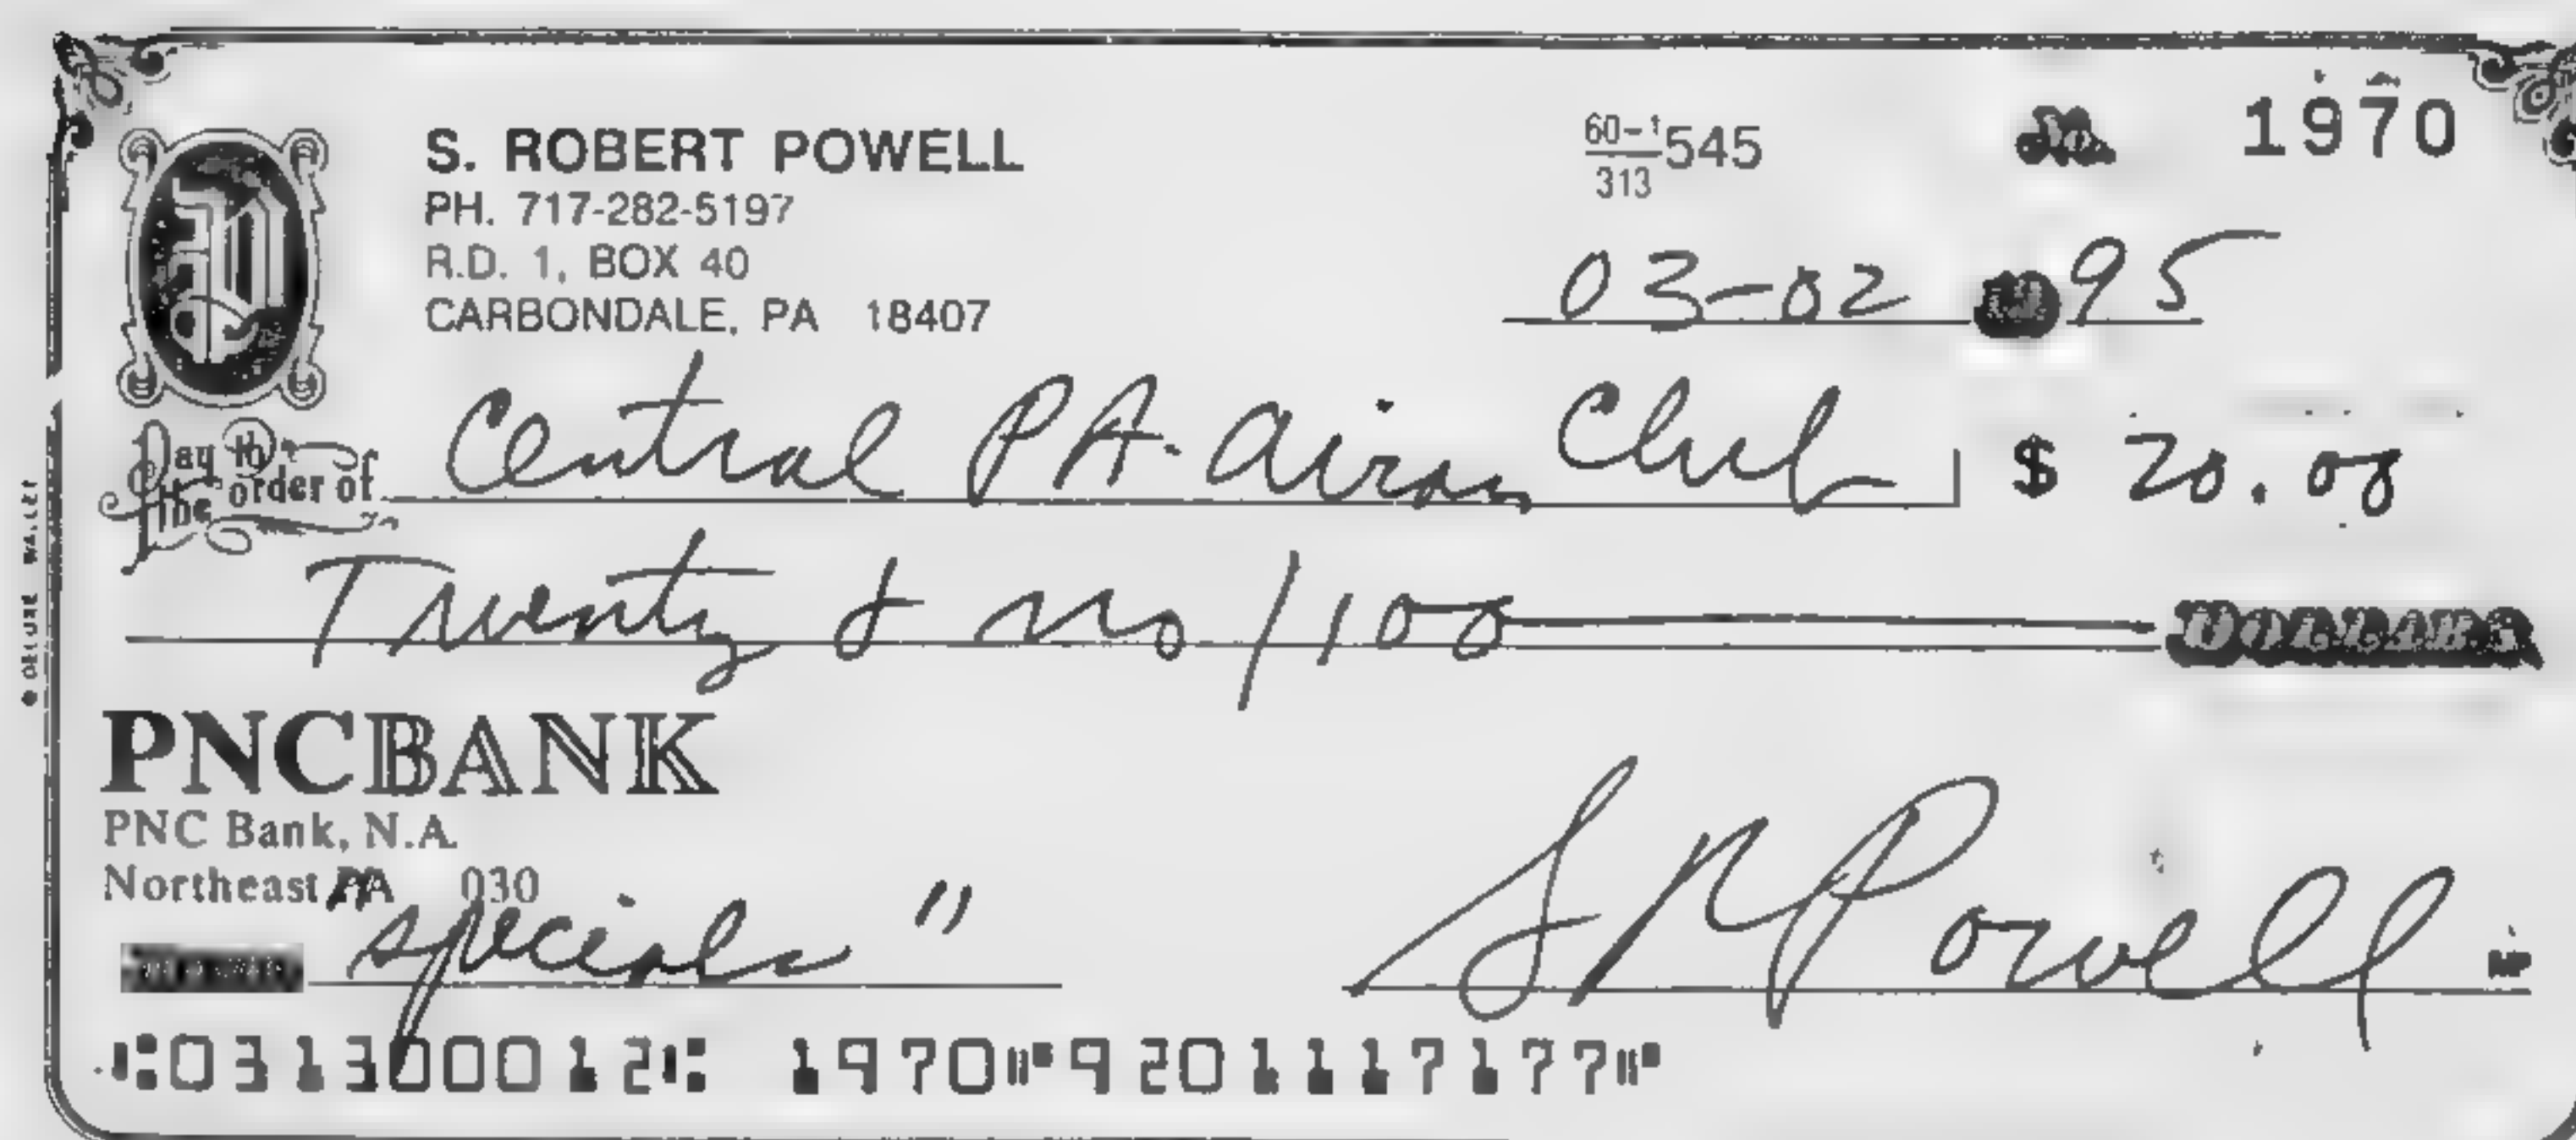 S. ROBERT POWELL
PH. 717-282-5197
R.D. 1, BOX 40
CARBONDALE, PA 18407
60-1
313
545
1970
03-02 95
Pay to the order of Central PA. Club $ 20.00
Twenty & no/100 DOLLARS
PNCBANK
PNC Bank, N.A.
Northeast PA 030
"specials"
S R Powell
MP
⑆031300012⑆ 1970⑈9201117177⑈